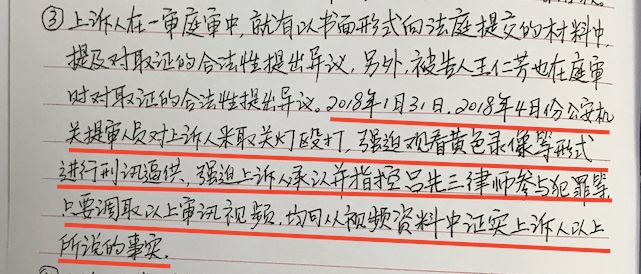 ③上诉人在一审庭审中,就有以书面形式向法庭提交的材料中,
提及对取证的合法性提出异议。另外,被告人王仁芳也在庭审
时对取证的合法性提出异议。2018年1月31日、2018年4月份公安机
关提审人员对上诉人采取关灯殴打,强迫观看黄色录像等形式
进行刑讯逼供,强迫上诉人承认并指控吕先三律师参与犯罪等,
只要调取以上审讯视频,均可从视频资料中证实上诉人以上
所说的事实.